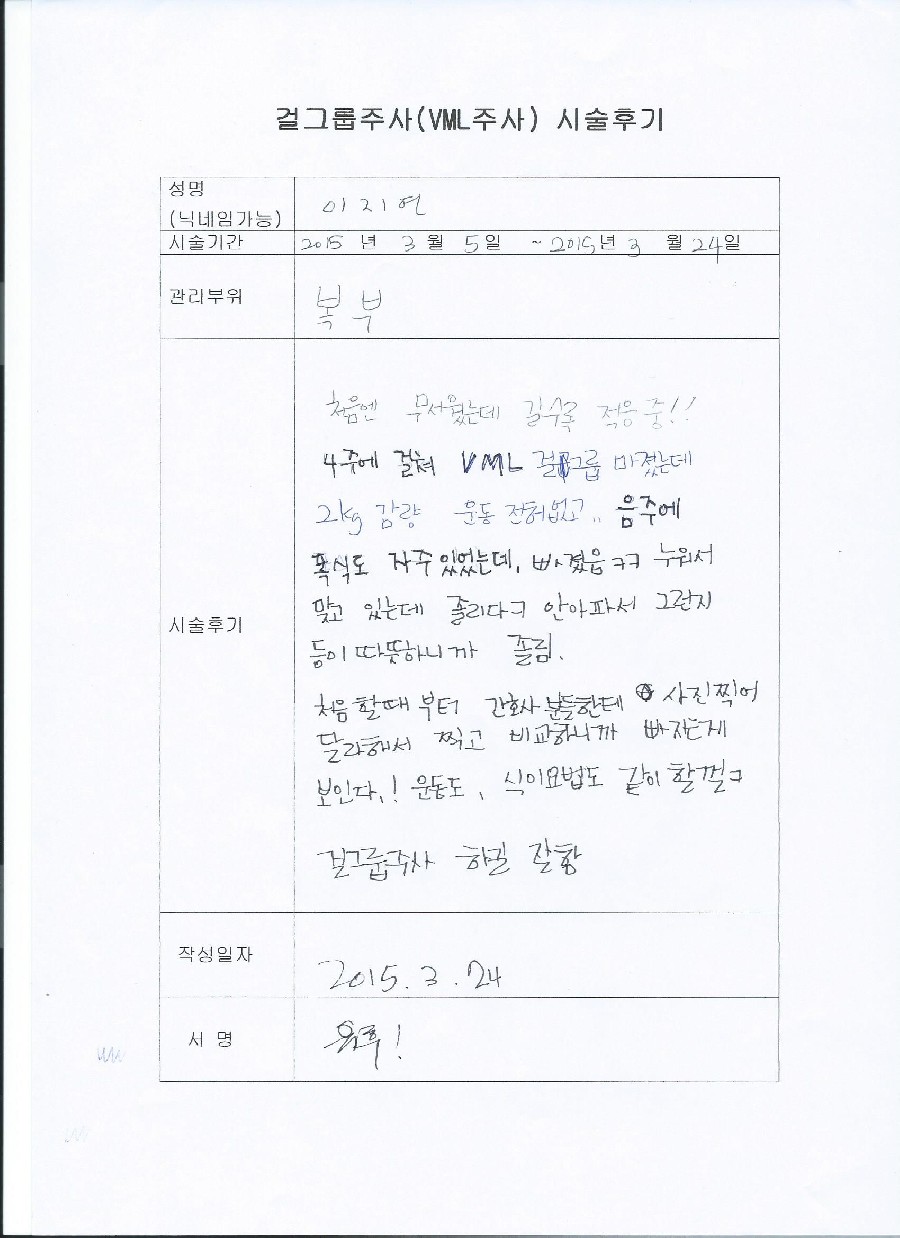 걸그룹주사(VML주사) 시술후기
성명
(닉네임가능)
이지연
시술기간
2015 년 3 월 5일 ~ 2015년 3 월 24일
관리부위
복부
시술후기
처음엔 무서웠는데 갈수록 적응중!!
4주에 걸쳐 VML 걸그룹 마졌는데
2kg 감량 운동 전혀없고.. 음주에
폭식도 자주있었는데, 빠졌음ㅋㅋ 누워서
맞고 있는데 졸리다ㅋ 안아파서 그런지
등이 따뜻하니까 졸림.
처음 할때 부터 간호사 분들한테 사진찍어
달라해서 찍고 비교하니까 빠지는게
보인다.! 운동도, 식이요법도 같이 할껄ㅋ
걸그룹주사 하길 잘함
작성일자
2015.3.24
서 명